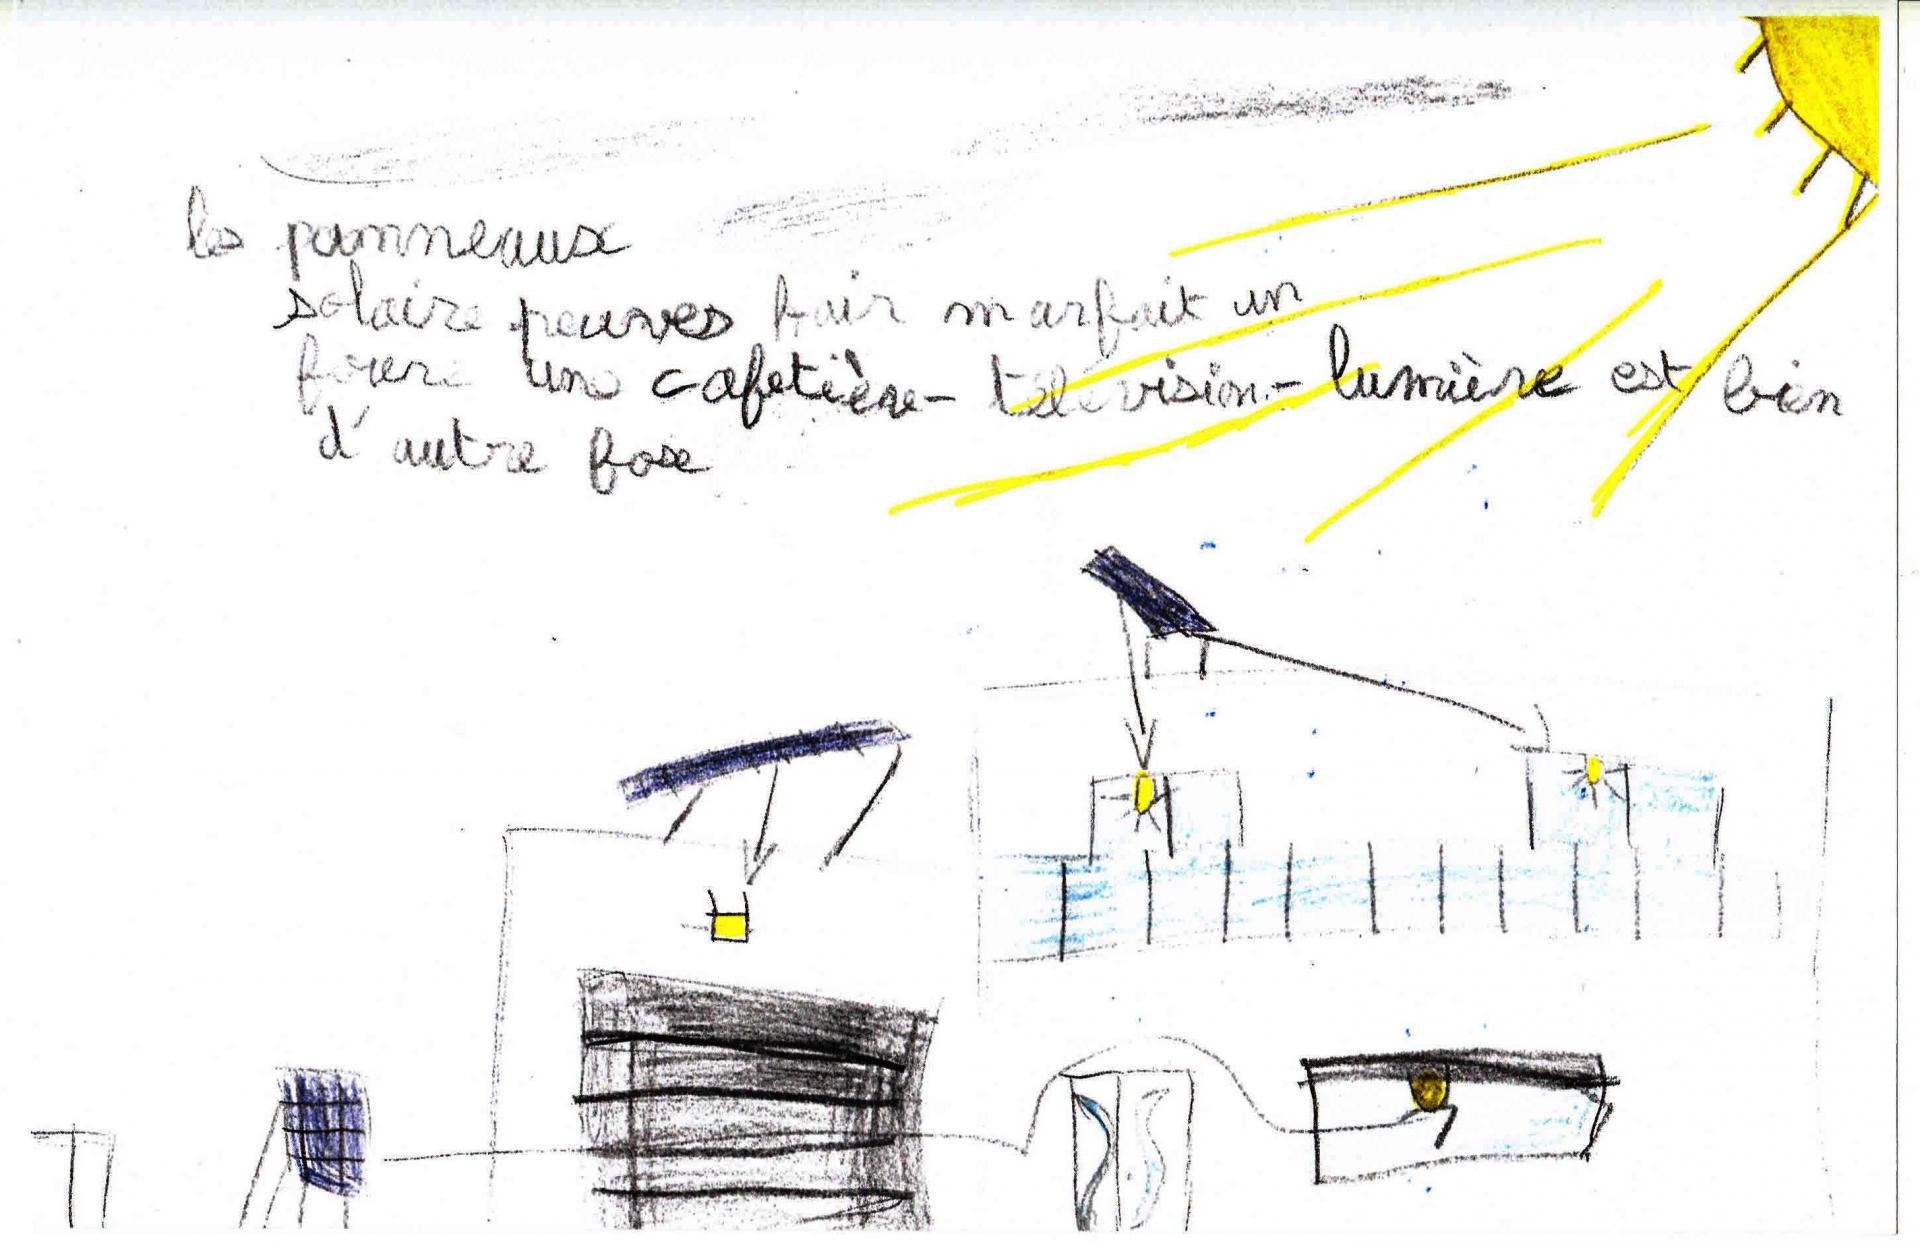 les panneaux
solaire peuves fair marfait un
foure une cafetière - télévision - lumière est bien
d'autre fose